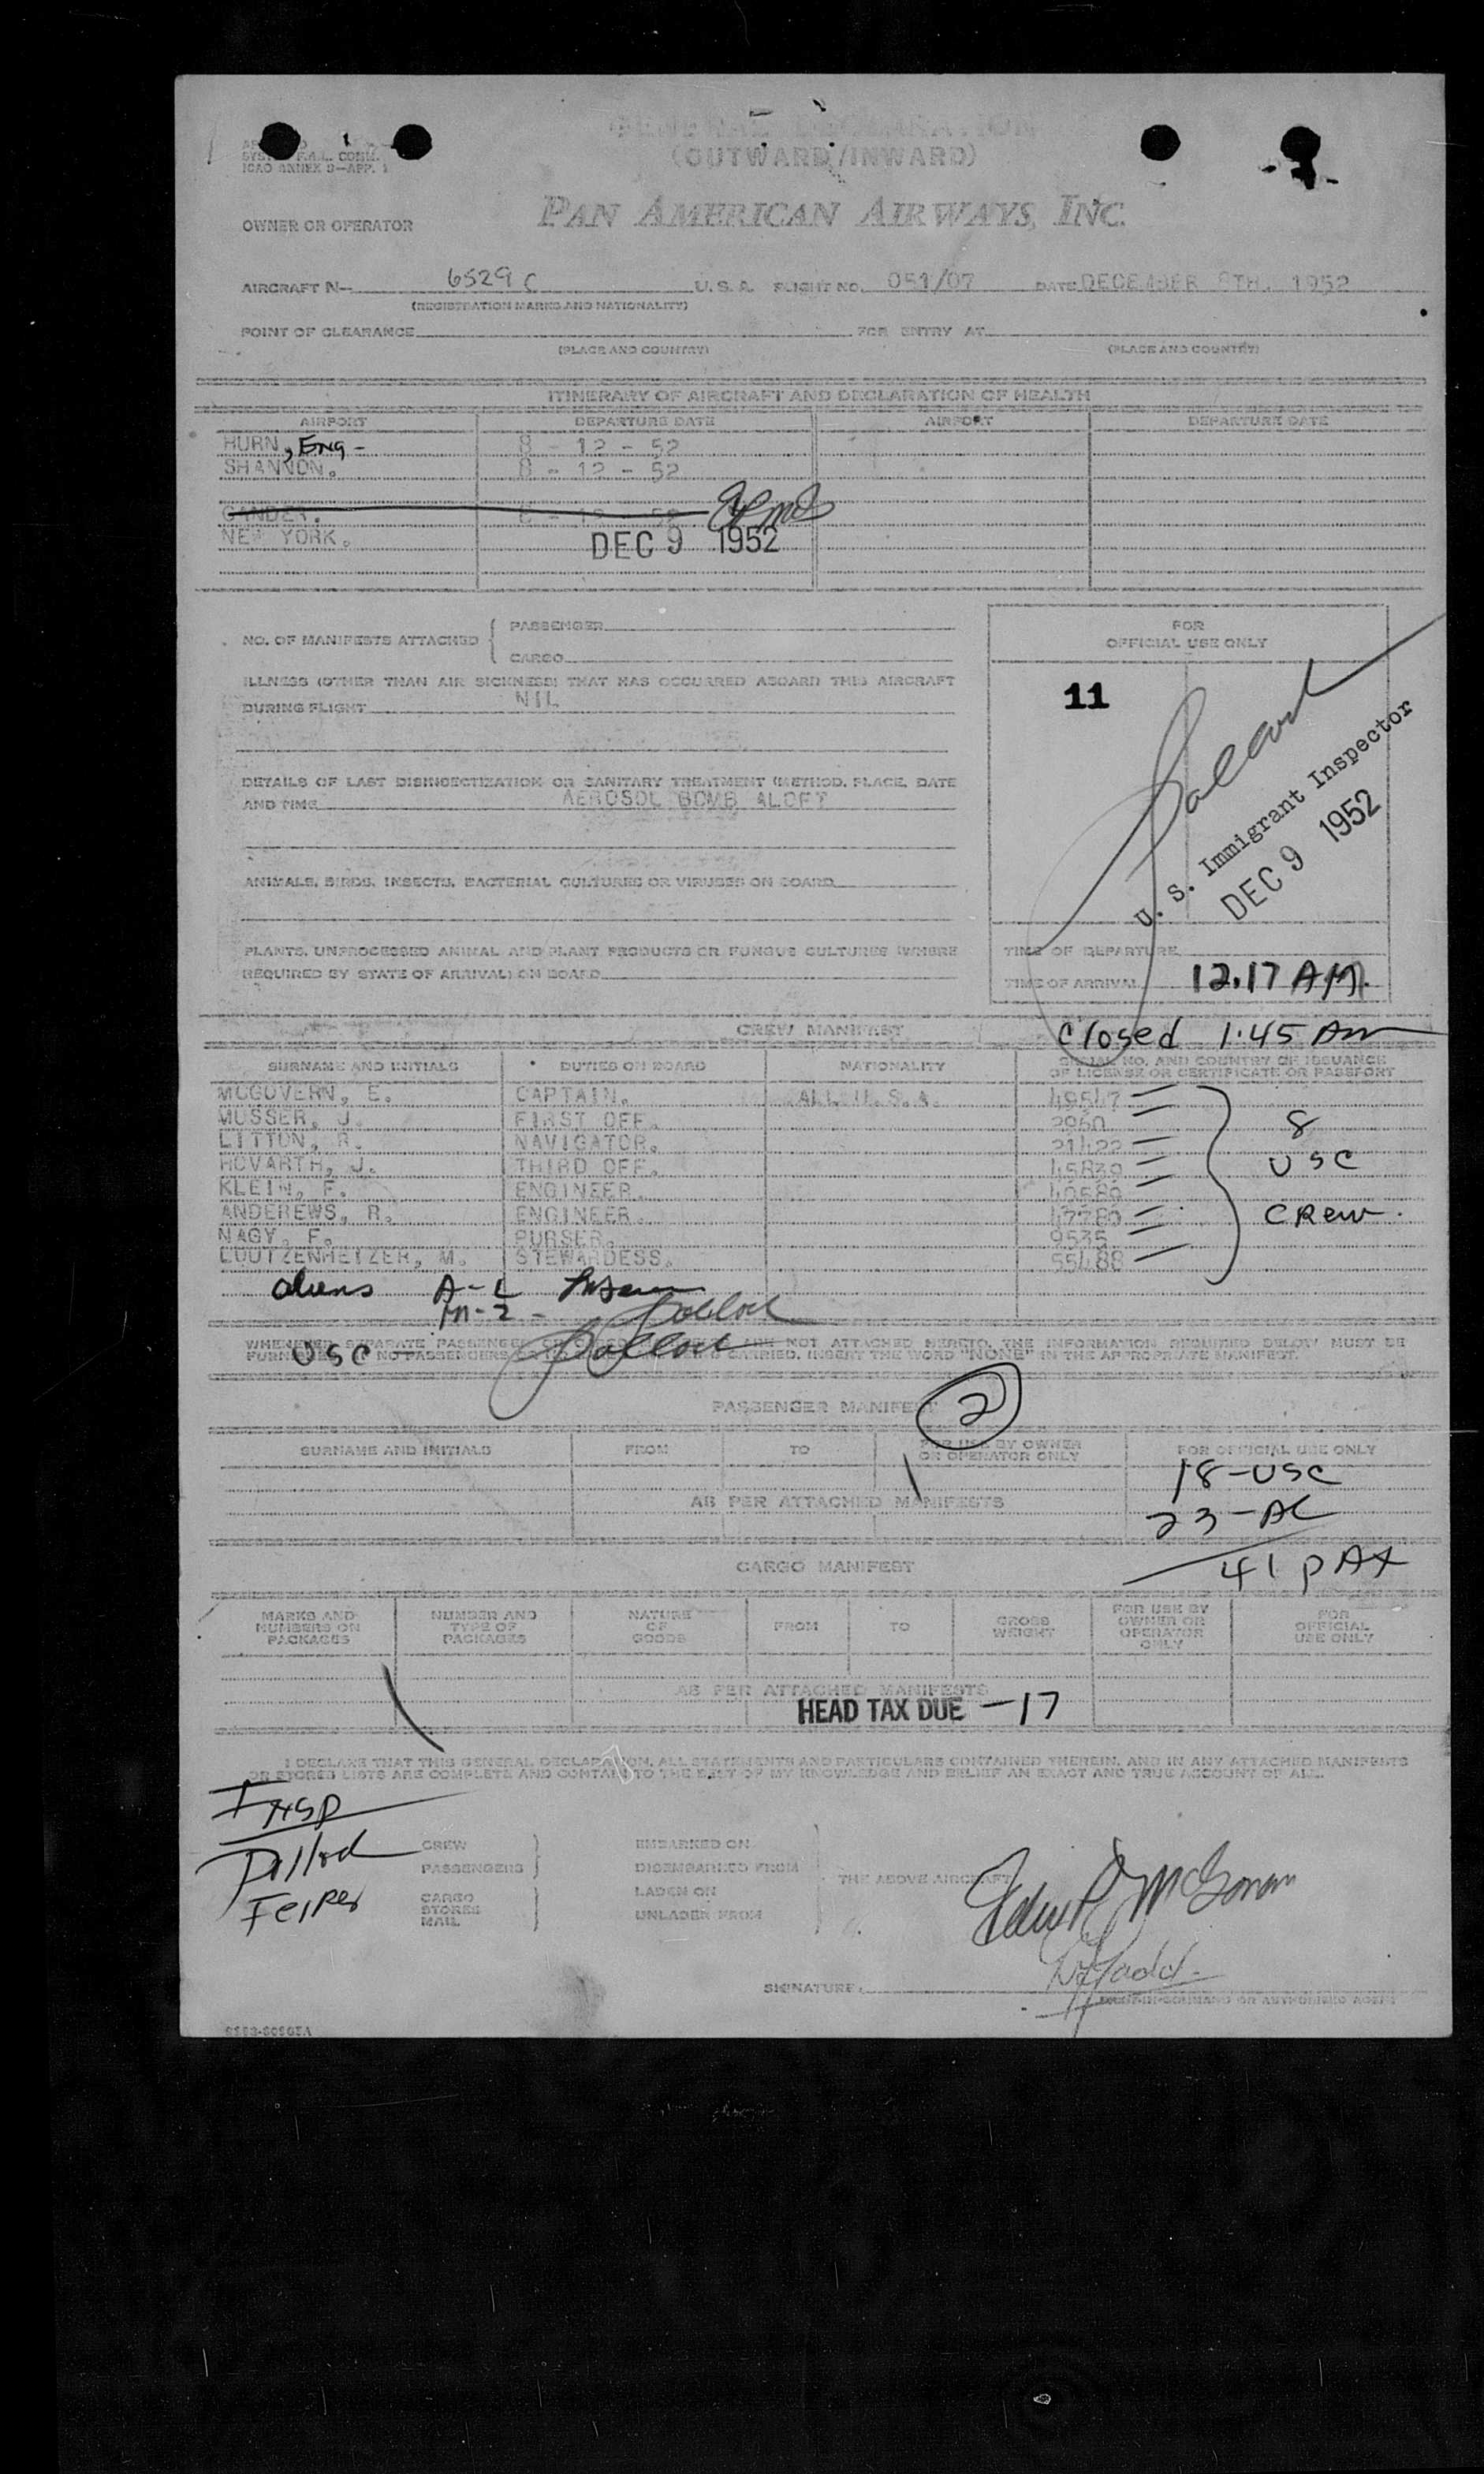 GENERAL DECLARATION
(OUTWARD/INWARD)
F.A.L. COMM.
ICAO ANNEX 9—APP. 1
OWNER OR OPERATOR PAN AMERICAN AIRWAYS, INC.
AIRCRAFT N— 6529 C U. S. A. FLIGHT NO. 051/07 DATE DECEMBER 8TH. 1952
(REGISTRATION MARKS AND NATIONALITY)
POINT OF CLEARANCE FOR ENTRY AT
(PLACE AND COUNTRY) (PLACE AND COUNTRY)
ITINERARY OF AIRCRAFT AND DECLARATION OF HEALTH
AIRPORT DEPARTURE DATE AIRPORT DEPARTURE DATE
HURN, ENG - 8 - 12 - 52
SHANNON. 8 - 12 - 52
GANDER. 8 - 12 - 52
NEW YORK. DEC 9 1952
NO. OF MANIFESTS ATTACHED { PASSENGER
CARGO
ILLNESS (OTHER THAN AIR SICKNESS) THAT HAS OCCURRED ABOARD THIS AIRCRAFT
DURING FLIGHT NIL
DETAILS OF LAST DISINSECTIZATION OR SANITARY TREATMENT (METHOD, PLACE, DATE
AND TIME AEROSOL BOMB ALOFT
ANIMALS, BIRDS, INSECTS, BACTERIAL CULTURES OR VIRUSES ON BOARD
PLANTS, UNPROCESSED ANIMAL AND PLANT PRODUCTS OR FUNGUS CULTURES (WHERE
REQUIRED BY STATE OF ARRIVAL) ON BOARD
FOR
OFFICIAL USE ONLY
11
U. S. Immigrant Inspector
DEC 9 1952
TIME OF DEPARTURE
TIME OF ARRIVAL 12.17 AM.
Closed 1:45 Am
CREW MANIFEST
SURNAME AND INITIALS DUTIES ON BOARD NATIONALITY SERIAL NO. AND COUNTRY OF ISSUANCE
OF LICENSE OR CERTIFICATE OR PASSPORT
MCGOVERN, E. CAPTAIN. ALL U.S.A. 49547
MUSSER, J. FIRST OFF. 2960
LITTON, R. NAVIGATOR. 21422
HOVARTH, J. THIRD OFF. 45839
KLEIN, F. ENGINEER. 40580
ANDEREWS, R. ENGINEER. 47780
NAGY, F. PURSER. 9535
LOUTZENHEIZER, M. STEWARDESS. 55488
8
USC
CREW.
aliens A-L
M-Z -
USC
WHENEVER SEPARATE PASSENGER NOT ATTACHED HERETO, THE INFORMATION REQUIRED BELOW MUST BE
NO PASSENGERS CARRIED, INSERT THE WORD "NONE" IN THE APPROPRIATE MANIFEST.
PASSENGER MANIFEST 2
SURNAME AND INITIALS FROM TO FOR USE BY OWNER
OR OPERATOR ONLY FOR OFFICIAL USE ONLY
18-USC
AS PER ATTACHED MANIFESTS
23-AL
41 PAX
CARGO MANIFEST
MARKS AND
NUMBERS ON
PACKAGES NUMBER AND
TYPE OF
PACKAGES NATURE
OF
GOODS FROM TO GROSS
WEIGHT FOR USE BY
OWNER OR
OPERATOR
ONLY FOR
OFFICIAL
USE ONLY
AS PER ATTACHED MANIFESTS
HEAD TAX DUE -17
I DECLARE THAT THIS GENERAL DECLARATION, ALL STATEMENTS AND PARTICULARS CONTAINED THEREIN, AND IN ANY ATTACHED MANIFESTS
OR STORES LISTS ARE COMPLETE AND CONTAIN TO THE BEST OF MY KNOWLEDGE AND BELIEF AN EXACT AND TRUE ACCOUNT OF ALL.
INSP
CREW
PASSENGERS
CARGO
STORES
MAIL
EMBARKED ON
DISEMBARKED FROM
LADEN ON
UNLADEN FROM
THE ABOVE AIRCRAFT
SIGNATURE
PILOT-IN-COMMAND OR AUTHORIZED AGENT